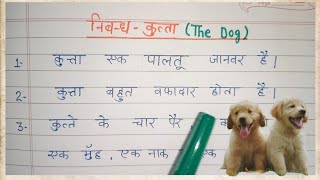 निबन्ध - कुत्ता (The Dog)
1- कुत्ता एक पालतू जानवर है।
2- कुत्ता बहुत वफादार होता है।
3- कुत्ते के चार पैर
एक मुँह, एक नाक